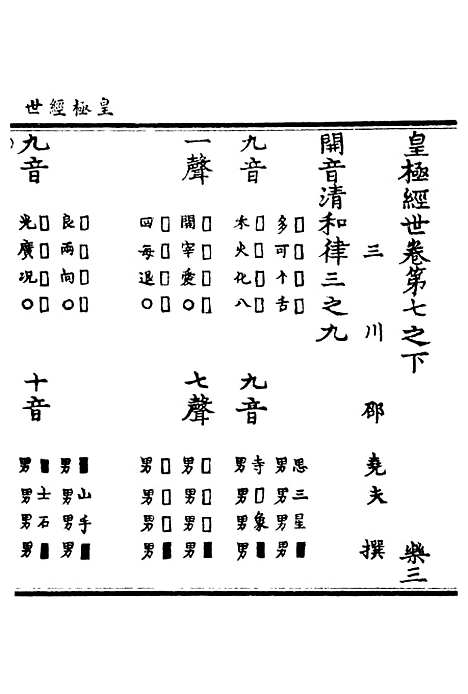 皇極經世
皇極經世卷第七之下 樂三
三川 邵堯夫 撰
開音清和律三之九
九音 九音
多可个舌
禾火化八
男思男三男星男■
男寺男□男象男■
一聲 七聲
開宰愛○
回每退○
男□男□男□男■
男□男□男□男■
九音 十音
良兩向○
光廣況○
男■男山男手男■
男■男士男石男■